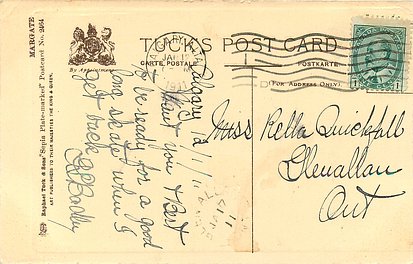 MARGATE
Raphael Tuck & Sons' "Sepia Plate-marked" Postcard No. 2464
ART PUBLISHERS TO THEIR MAJESTIES THE KING & QUEEN.
By Appointment
TUCK'S POST CARD
CARTE POSTALE
POSTKARTE
(FOR ADDRESS ONLY).
Calgary
Want you Best
be ready for a good
long skate when I
get back
Miss Rella Quickfall
Glenallan
Ont